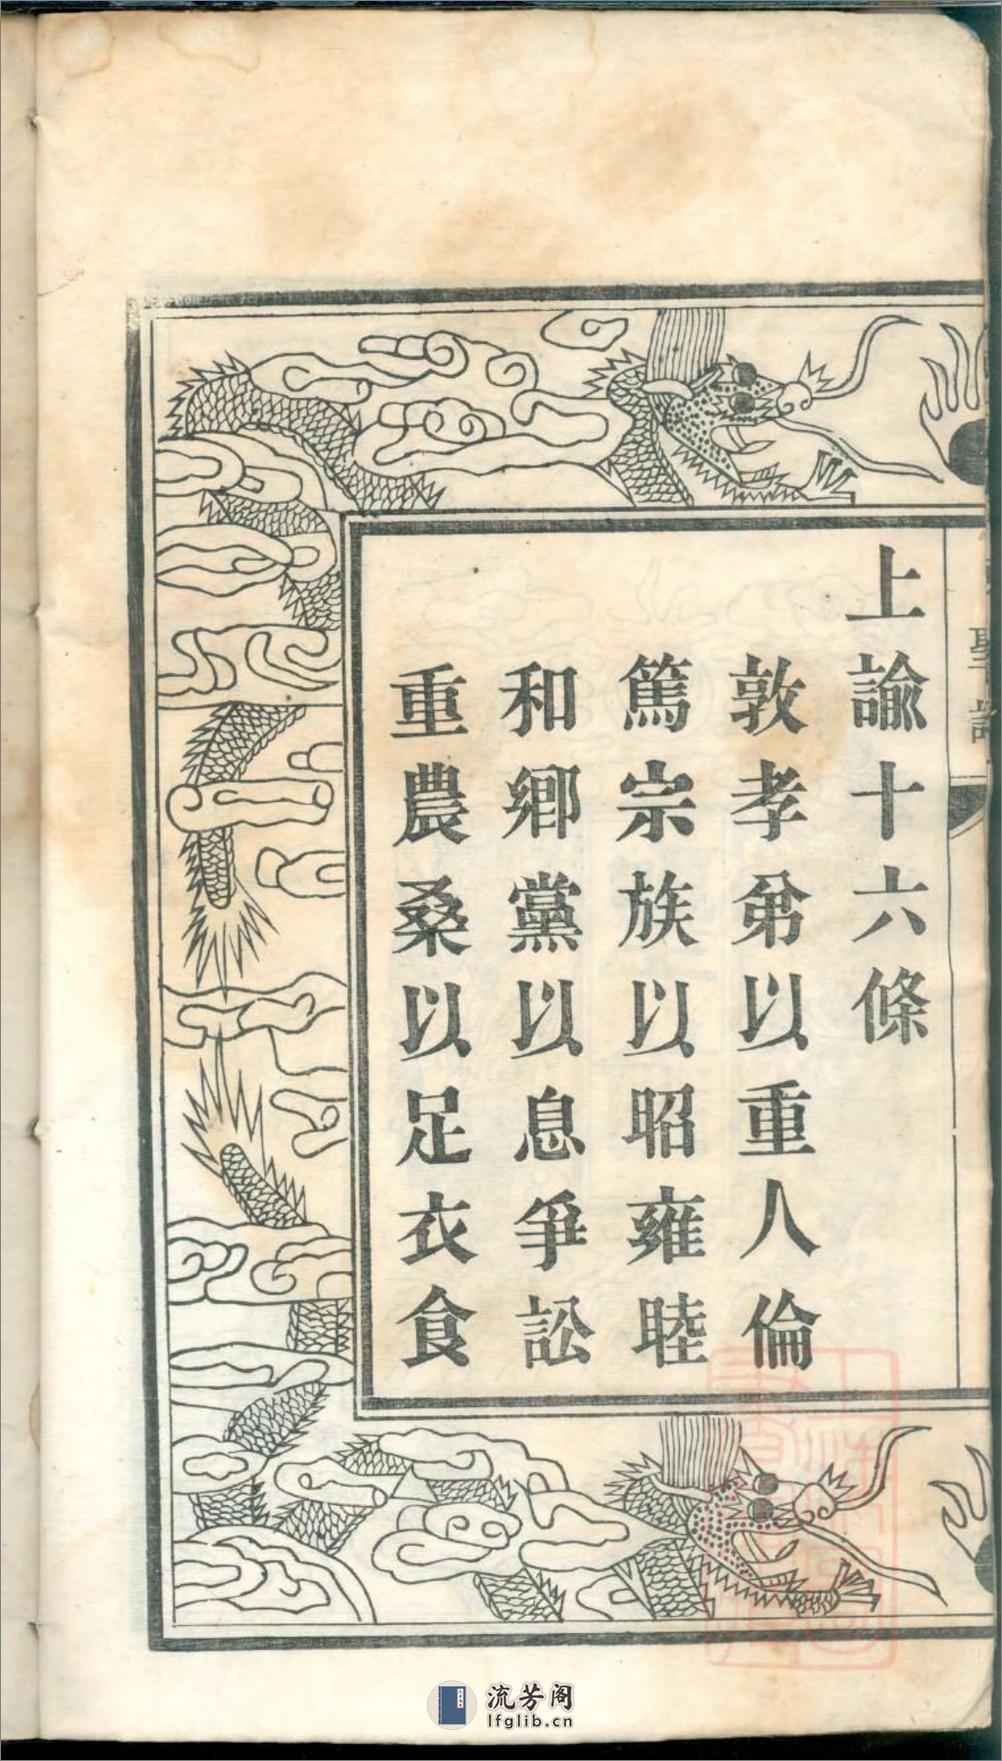 上諭十六條
敦孝弟以重人倫
篤宗族以昭雍睦
和鄉黨以息爭訟
重農桑以足衣食
聖諭
流芳阁
lfglib.cn